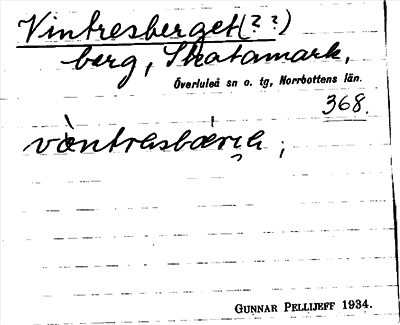 Vintresberget (? ?)
berg, Skatamark,
Överluleå sn o. tg, Norrbottens län.
368.
GUNNAR PELLIJEFF 1934.